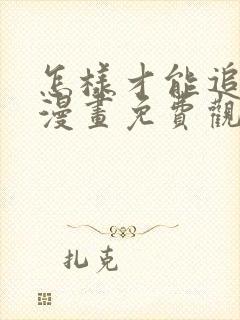 怎樣才能追
漫畫免費觀
扎克